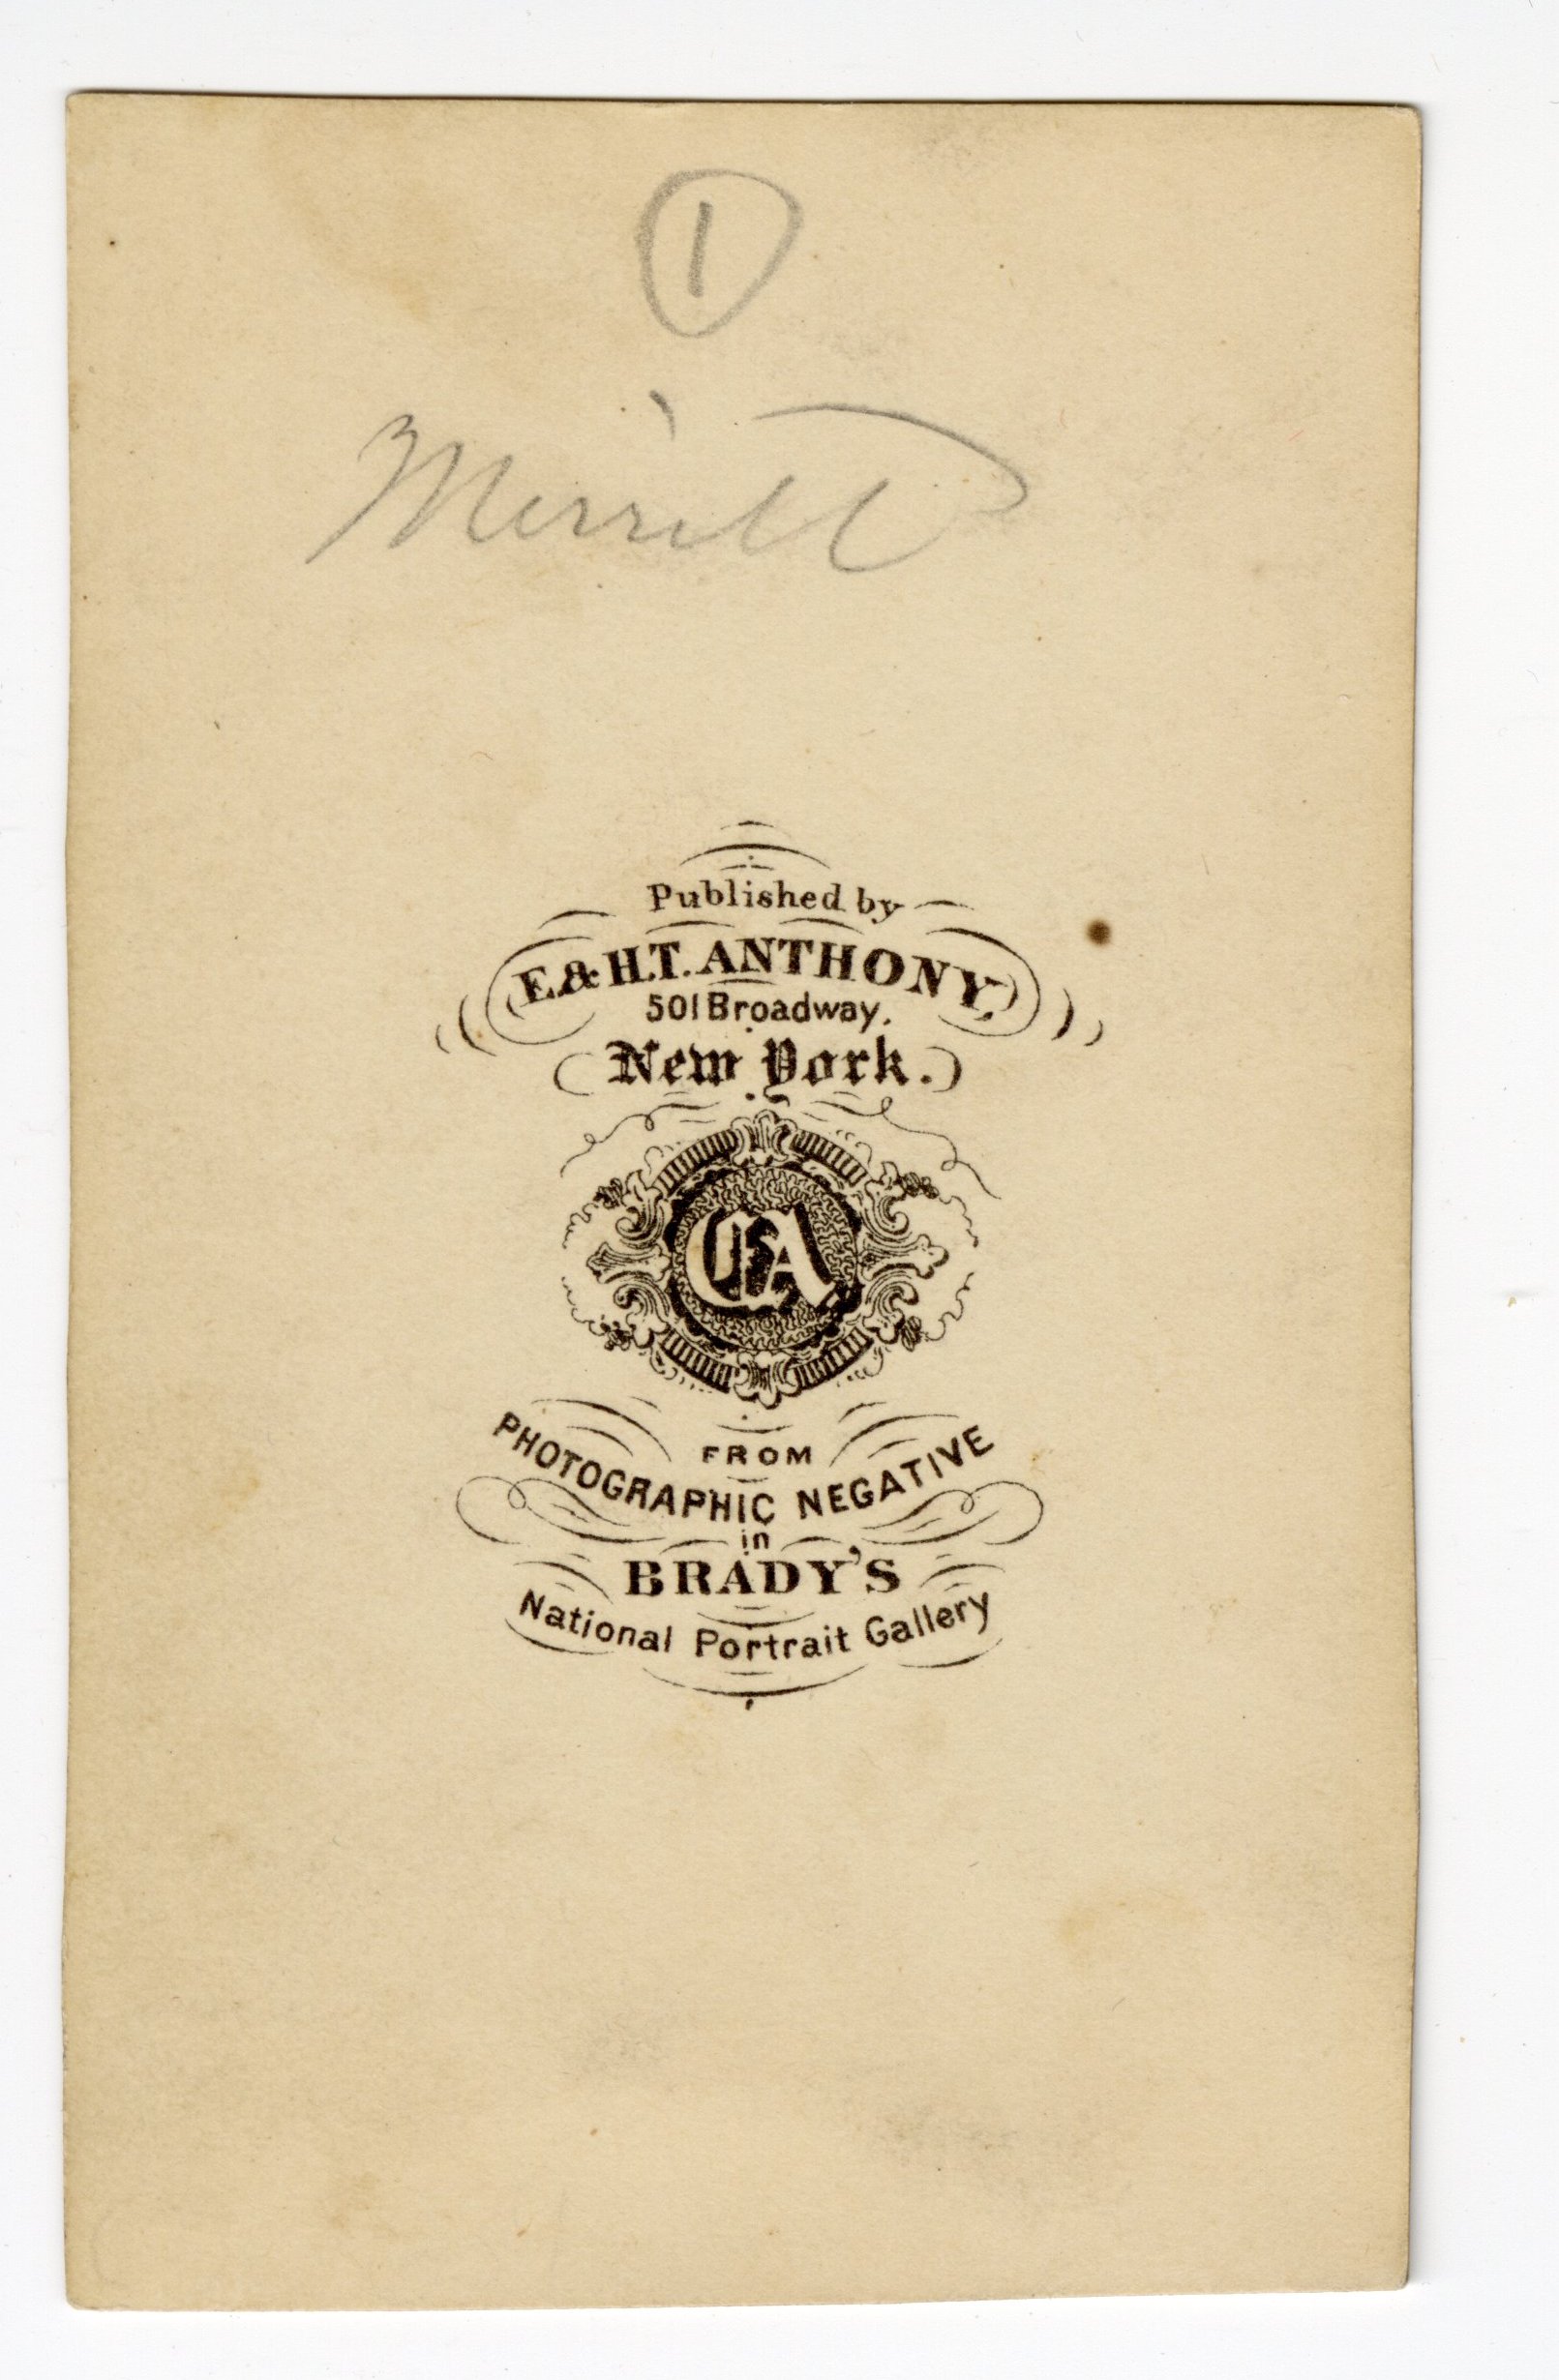 1
Merritt
Published by
E. & H.T. ANTHONY,
501 Broadway.
New York.
EA
FROM
PHOTOGRAPHIC NEGATIVE
in
BRADY'S
National Portrait Gallery